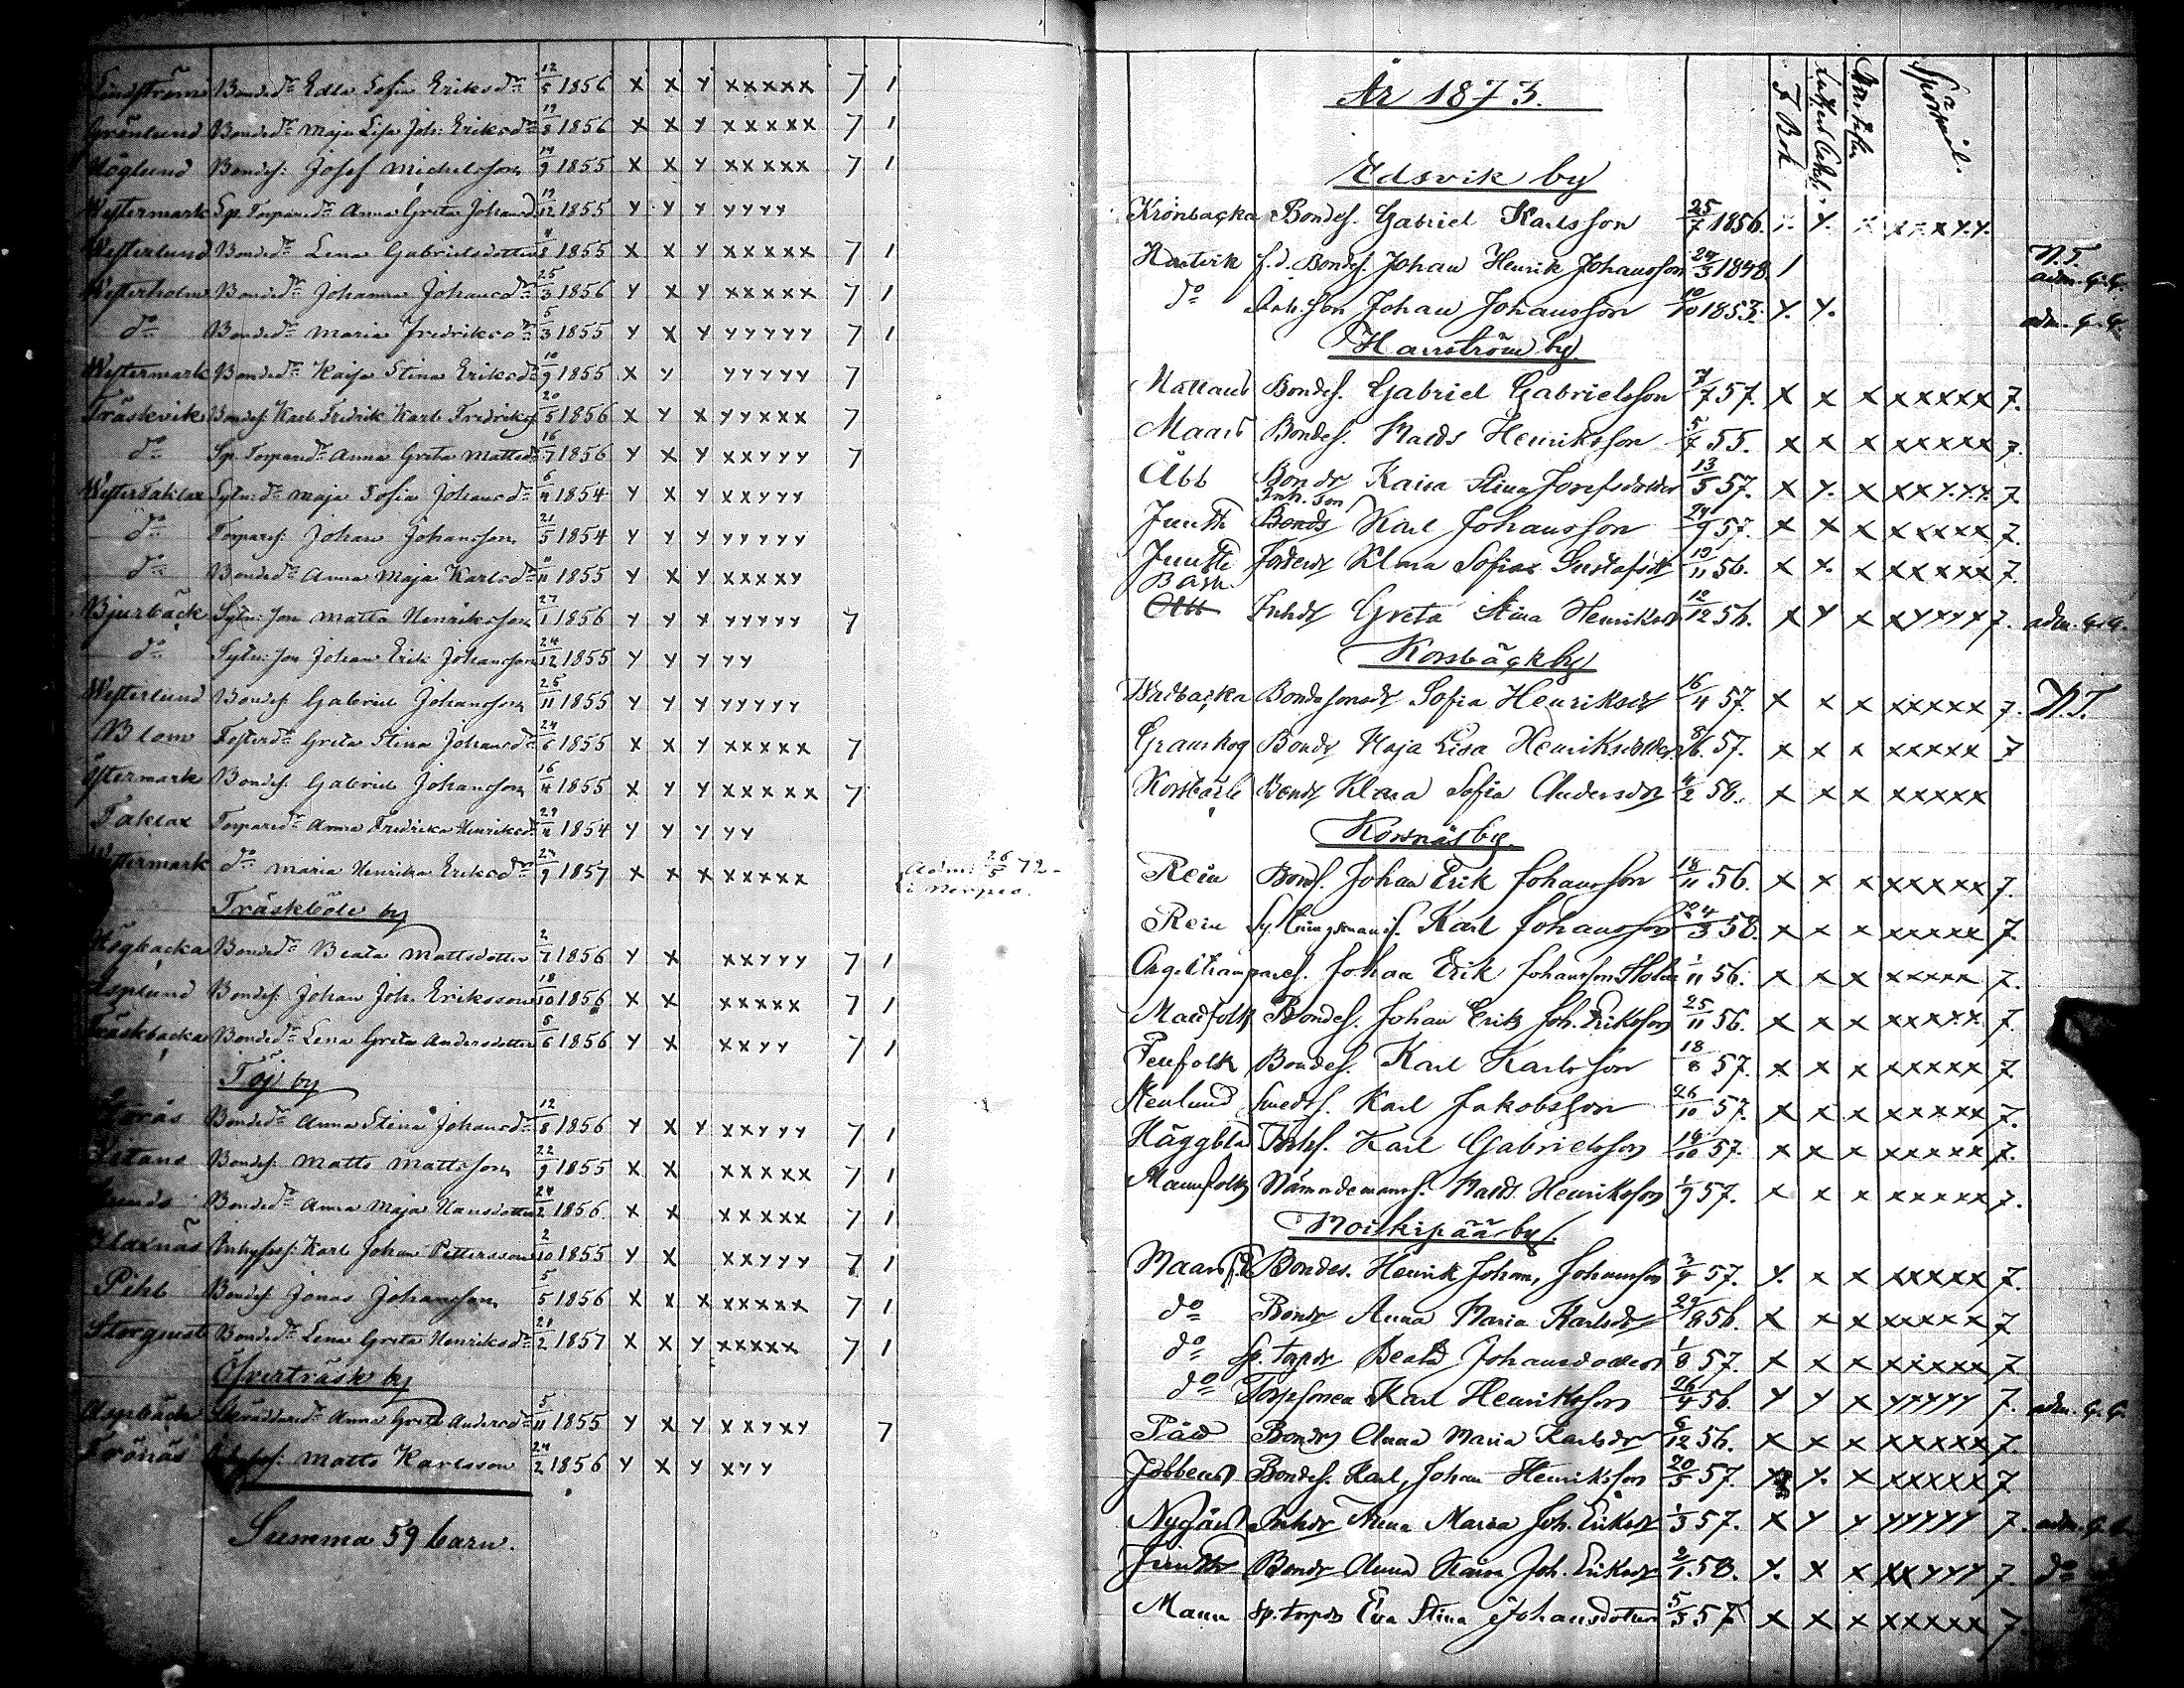 Sundström Bondedr Edla Sofia Eriksdr 12/5 1856 x x y xxxxx 7 1
Grönlund Bondedr Maja Lisa Joh: Eriksdr 19/8 1856 x x y xxxxx 7 1
Höglund Bondes: Josef Michelsson 14/9 1855 x x y xxxxx 7 1
Westermark Sp. Torparedr Anna Greta Johansd 12/12 1855 y y y yyyy
Westerlund Bondedr Lena Gabrielsdotter 1855 x x y xxxxx 7 1
Westerholm Bondedr Johanna Johansdr 25/3 1856 y x y xxxxx 7 1
do Bondedr Maria Fredriksdr 5/3 1855 y x y yyyyy 7 1
Westermark Bondedr Kajsa Stina Eriksdr 10/9 1855 x y yyyyy 7
Träskvik Bondes: Karl Fredrik Karl Fredriks 20/5 1856 x y x yyxxx 7
do Sp. Torparedr Anna Greta Mattsd 16/7 1856 y x y xxyyy 7
Westertaklax Sytn: dr Maja Sofia Johansdr 6/4 1854 y x y xxyyy
do Torpares: Johan Johansson 21/5 1854 y y y yyyyy
do Bondedr Anna Maja Karlsdr 11/11 1855 y x y xxxxy
Bjurbäck Sytn: son Matts Henriksson 27/1 1856 y y x yyyyy 7
do Sytn: son Johan Erik Johansson 24/12 1855 y y y yy
Westerlund Bondes Gabriel Johansson 25/11 1855 y y y yyyyy
Blom Fosterdr Greta Stina Johansdr 24/6 1855 x x y xxxxx 7
Östermark Bondes. Gabriel Johansson 16/4 1855 x y y xxxxx 7
Taklax Torparedr Anna Fredrika Henriksd 1854 y y y yy
Westermark do Maria Henrika Eriksdr 23/9 1857 x x x xxxxx Adm: 26/5 72 -
i Nerpes.
Träskböle by
Högbacka Bondedr Beata Mattsdotter 2/7 1856 y x xxyyy 7 1
Asplund Bondes: Johan Joh. Eriksson 18/10 1856 x x xxxxx 7 1
Träskbacka Bondedr Lena Greta Andersdotter 5/6 1856 y x xxyy 7 1
Töjby
Bondedr Anna Stina Johansdr 12/8 1856 y x y xxyyy 7 1
Bondes: Matts Mattsson 22/9 1855 x x xxxxx 7 1
Bondedr Anna Maja Hansdotter 24/2 1856. x x xxxxx 7 1
Inhyses: Karl Johan Pettersson 2/10 1855 y x xxyyy 7 1
Pihl Bondes Jonas Johansson 5/5 1856 x x x xxxxx 7 1
Storgnists Bondedr Lena Greta Henriksdr 21/2 1857 x x y xxxxx 7 1
Öfverträsk by
Aspbäck Skräddaredr Anna Greta Andersdr 5/11 1855 y x y xxyxy 7
Matts Karlsson 24/2 1856 y x y xyy
Summa 59 barn.
År 1873.
I Bok
Spörsmål.
Edsvik by
Krönbacka Bondes. Gabriel Karlsson 25/7 1856.
f.d. Bondes. Johan Henrik Johansson 24/3 1848. 1 N.T. adm. G.G.
do Johan Johansson 10/10 1853. y. y. adm. G.G.
Harrström by
Bondes. Gabriel Gabrielsson 7/7 57. x x x xxxxx 7.
Maars Bondes. Mats Henriksson 5/7 55. x x x xxxxx 7.
Åbb Bondr Kaisa Stina Josefsdotter 13/5 57. x y. x xxy.y.y 7.
Inh. son
Juuth Bonds Karl Johansson 24/9 57. x x x xxxxx 7.
Juuth Fosterdr Klara Sofia Gustafsdr 19/11 56. x x. x xxxxx 7.
Bask
Åbb Inhdr Greta Stina Henriksdr 12/12 56. x y x xyyyy 7. adm. G.G.
Korsbäck by
Bondesonsdr Sofia Henriksdr 16/4 57. x x x xxxxx 7. N.T.
Granskog Bondr Maja Lisa Henriksdotter 8/6. 57. x x x xxxxx 7
Korsbäck Bondr Klara Sofia Andersdr 4/2 58. x x x xxxxx
Korsnäs by.
Rein Bonds. Johan Erik Johansson 18/11 56. x x x xxxxx 7.
Rein Karl Johansson 24/3 58. x x x xxxxx 7
Johan Erik Johansson Holm 1/11 56. x x x xxxxx 7.
Manfolk Bondes. Johan Erik Joh. Eriksson 25/11 56. x x x xxxxx. 7.
Penfolk Bondes. Karl Karlsson 18/8 57. x x x xxxxx 7
Stenlund Smeds. Karl Jakobsson 26/10 57. x x x xxxxx 7.
Häggblad Torps. Karl Gabrielsson 14/10 57. x x x xxxxx 7.
Mannfolk Nämndemans. Mats Henriksson 1/9 57. x x x xxxxx 7.
Moikipää by.
Maars Bondes. Henrik Johan, Johansson 3/4 57. y. x x xxxxx 7.
do Bondr Anna Maria Karlsdr 29/8 56. x x x xxxxx 7
do Sp. torpdr Beata Johansdotter 1/8 57. x x x xxxxx 7.
do Torpsonen Karl Henriksson 26/4 56. y y x yyyyy 7. adm. G.G.
Påd Bondr Anna Maria Karlsdr 6/12 56. x x x xxxxx 7.
Jobbens Bondes. Karl, Johan Henriksson 20/5 57. x y. x xxxxx 7
Nygård Inhdr Anna Maria Joh. Eriksdr 1/3 57. x y y yyyyy 7. adm. G.G.
Juuth Bondr Anna Kaisa Joh. Eriksdr 2/1. 58. y. x x xxyyy 7. do
Mann Sp. torpdr Eva Stina Johansdotter 5/5 57 x x x xxxxx 7